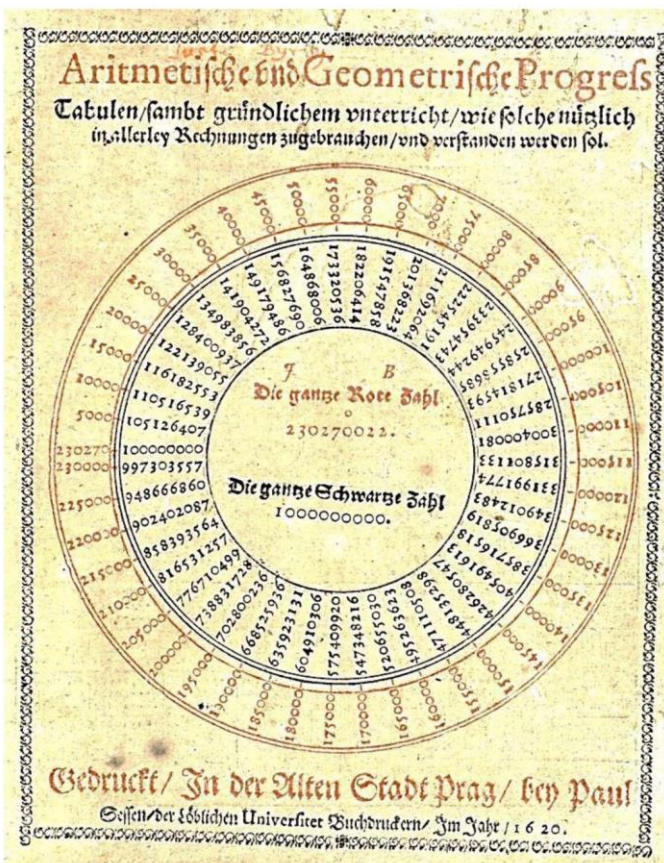 Aritmetische vnd Geometrische Progreſs
Tabulen/ſambt gründlichem vnterricht/wie ſolche nützlich
in allerley Rechnungen zugebrauchen/vnd verſtanden werden ſol.
5000
10000
15000
20000
25000
30000
35000
40000
45000
50000
55000
60000
65000
70000
75000
80000
85000
90000
95000
100000
105000
110000
115000
120000
125000
130000
135000
140000
145000
150000
155000
160000
165000
170000
175000
180000
185000
190000
195000
200000
205000
210000
215000
220000
225000
230000
230270
100000000
105126407
110516539
116182553
122139055
128400937
134983856
141904272
149179486
156827690
164868006
173320536
182200414
191547858
201368223
211692064
222545191
233954743
245949244
258558685
271814593
285750111
300400081
315801133
331991774
349012483
366905819
385716518
405491613
426280547
448135298
471110508
495263623
520655030
547348216
575400920
604910306
635923131
668525936
702800236
738831728
776710499
816531257
858393564
902402087
948666860
997303557
J B
Die gantze Rote Zahl
o
230270022.
Die gantze Schwartze Zahl
1000000000.
Gedruckt/ In der Alten Stadt Prag/ bey Paul
Seſſen/der Löblichen Univerſitet Buchdruckern/ Im Jahr/1620.